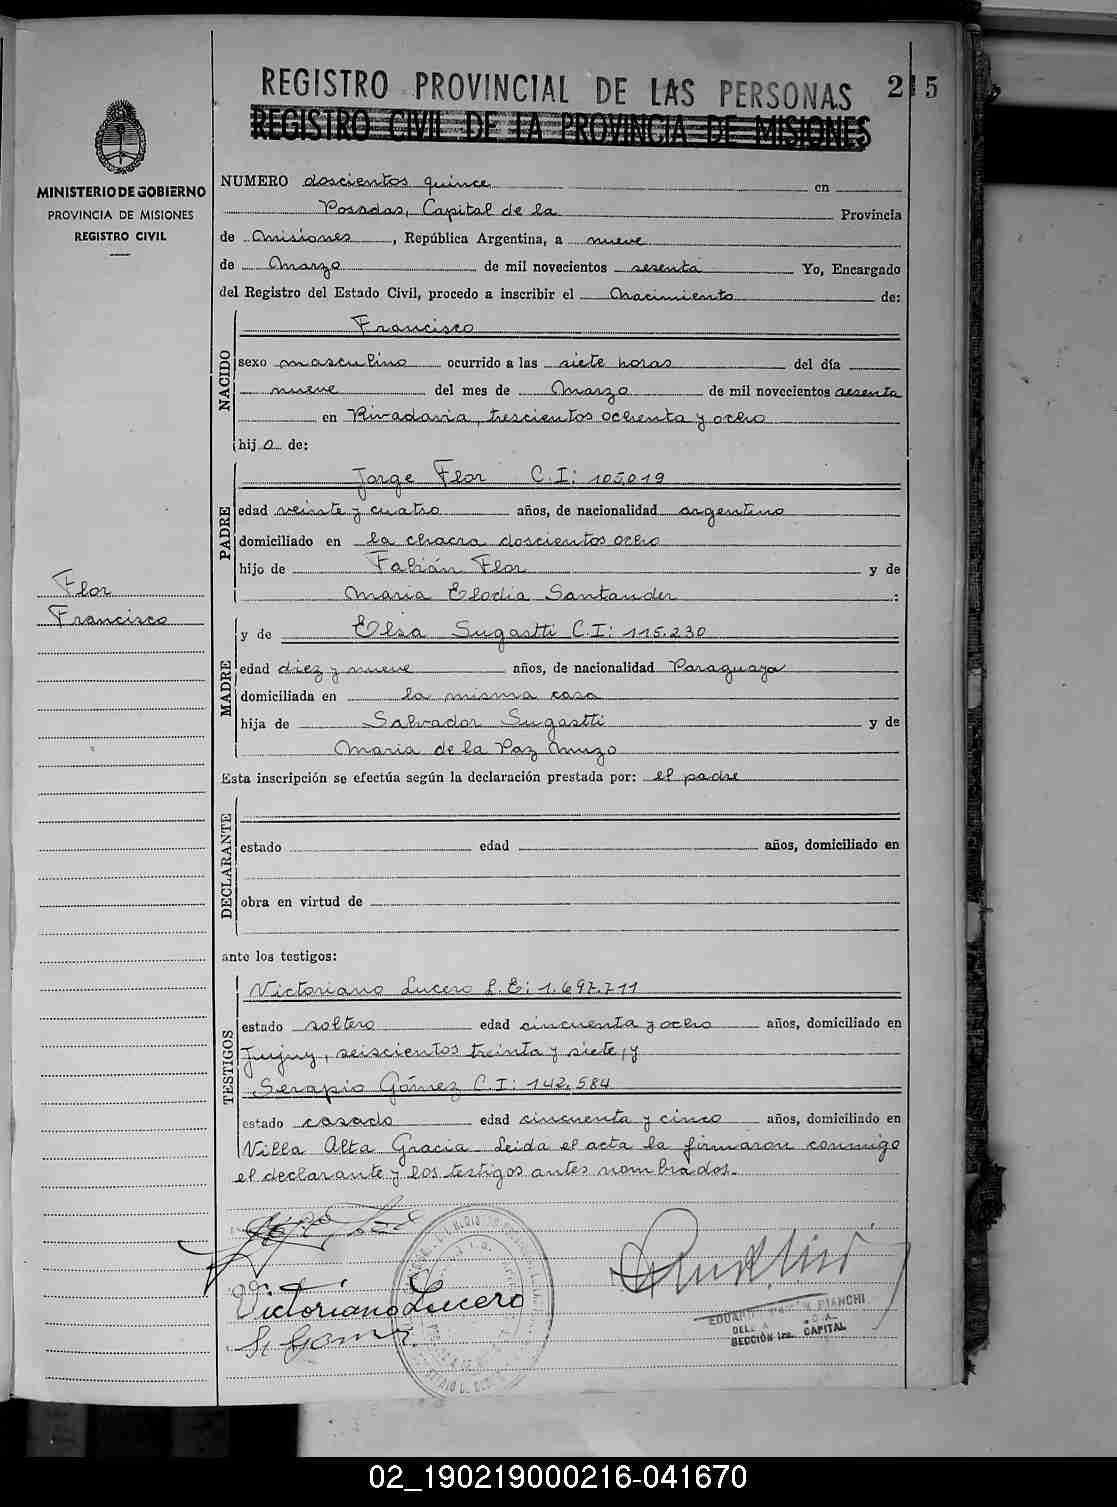 REGISTRO PROVINCIAL DE LAS PERSONAS
215
REGISTRO CIVIL DE LA PROVINCIA DE MISIONES
MINISTERIO DE GOBIERNO
PROVINCIA DE MISIONES
REGISTRO CIVIL
NUMERO doscientos quince en
Posadas, Capital de la Provincia
de Misiones, República Argentina, a nueve
de Marzo de mil novecientos sesenta Yo, Encargado
del Registro del Estado Civil, procedo a inscribir el Nacimiento de:
NACIDO
Francisco
sexo masculino ocurrido a las siete horas del día
nueve del mes de Marzo de mil novecientos sesenta
en Rivadavia, trescientos ochenta y ocho
hijo de:
PADRE
Jorge Flor C.I: 105.019
edad veinte y cuatro años, de nacionalidad argentino
domiciliado en la chacra doscientos ocho
hijo de Fabián Flor y de
Maria Elodia Santander :
Flor
Francisco
MADRE
y de Elsa Sugastti C.I: 115.230
edad diez y nueve años, de nacionalidad Paraguaya
domiciliada en la misma casa
hija de Salvador Sugastti y de
Maria de la Paz Muzo
Esta inscripción se efectúa según la declaración prestada por: el padre
DECLARANTE
estado edad años, domiciliado en
obra en virtud de
ante los testigos:
TESTIGOS
Victoriano Lucero L.E: 1.697.711
estado soltero edad cincuenta y ocho años, domiciliado en
Jujuy, seiscientos treinta y siete, y
Serapio Gómez C.I: 142.584
estado casado edad cincuenta y cinco años, domiciliado en
Villa Alta Gracia. Leida el acta la firmaron conmigo
el declarante y los testigos antes nombrados.
Victoriano Lucero
S. Gomez
BIANCHI
SECCIÓN 1ra. CAPITAL
02_190219000216-041670